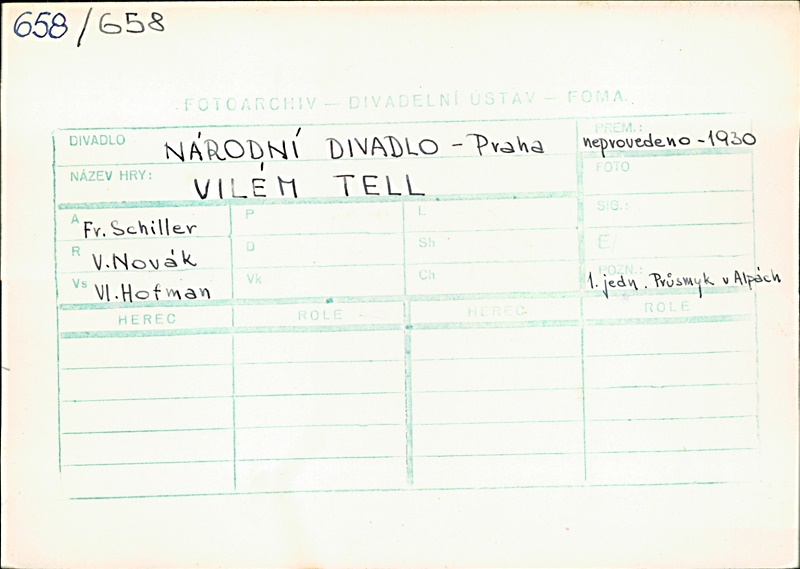 658/658
FOTOARCHIV — DIVADELNÍ ÚSTAV — FOMA
DIVADLO NÁRODNÍ DIVADLO - Praha
PREM.: neprovedeno - 1930
NÁZEV HRY: VILÉM TELL
FOTO
A Fr. Schiller P L
SIG.:
R V. Novák D Sh
E/
Vs Vl. Hofman Vk Ch
POZN.: 1. jedn. Průsmyk v Alpách
HEREC ROLE HEREC ROLE